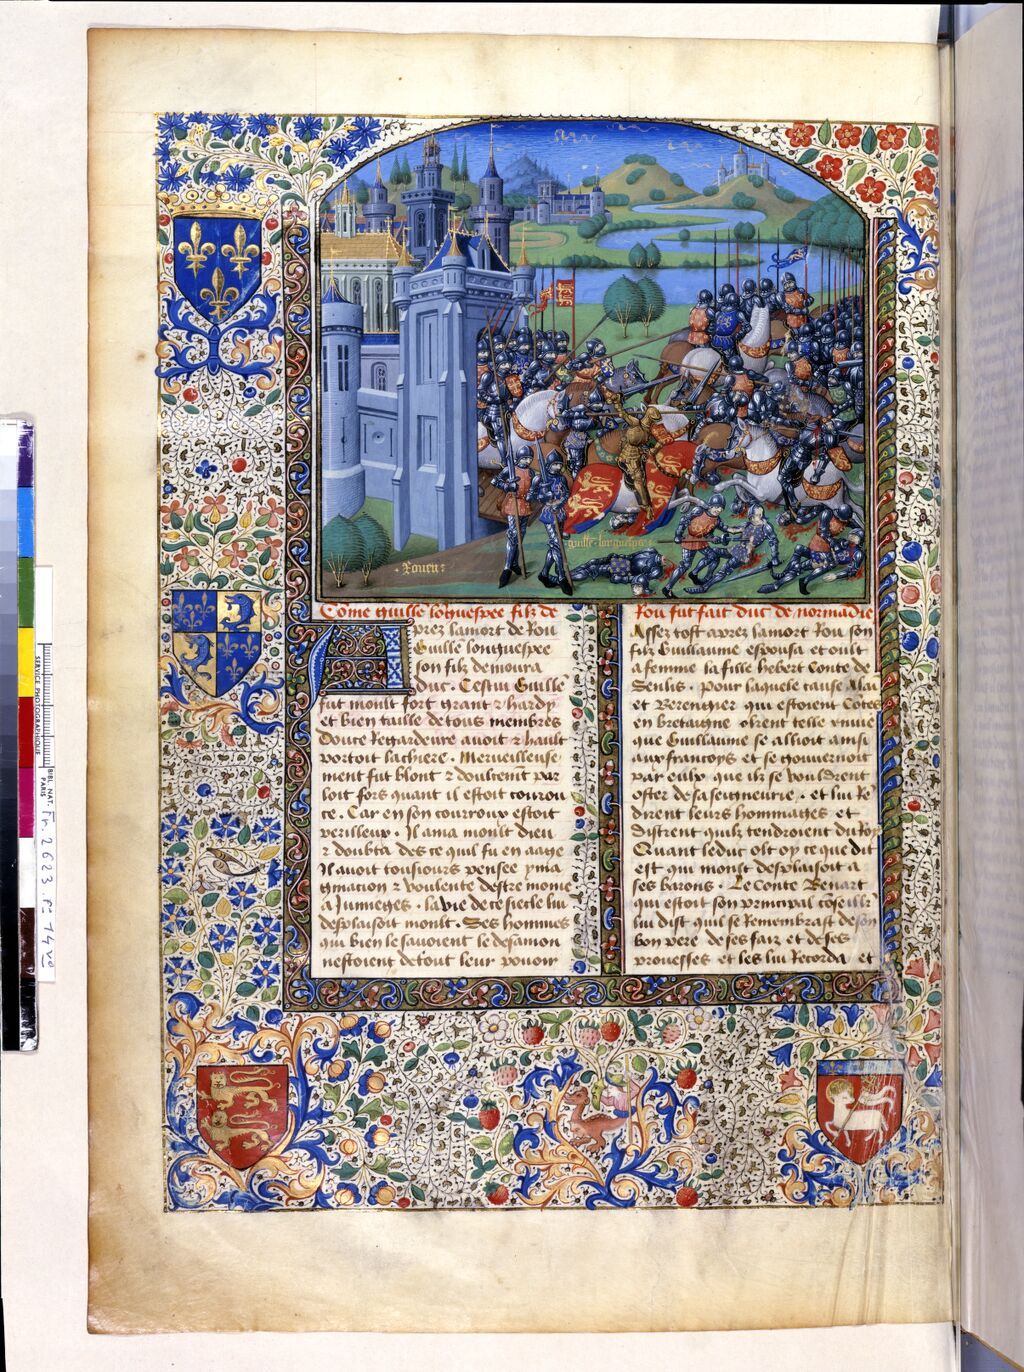 guille longuespee
Rouen
Come guille loguespee filz de
prez lamort de Rou
Guille longuespee
son filz demoura
duc. Cestui Guille
fut moult fort grant & hardy
et bien taille de tous membres
doulce Regardeure avoit & hault
portoit lachiere. Merveilleuse
ment fut blont &
loit fors quant il estoit courou
ce. Car en son courroux estoit
perilleux. Il ama moult dieu
& doubta des ce quil fu en aage
Il avoit tousiours pensee yma
gination & voulente destre moine
a Jumieges. la vie de ce siecle lui
desplaisoit moult. Ses hommes
qui bien le savoient le
nestoient de tout leur pouoir
Rou fut fait duc de normadie
Assez tost aprez lamort Rou son
filz Guillaume espousa et oult
a femme la fille hebert Conte de
Senlis. pour laquele cause Alai
et Berengier qui estoient Cotes
en bretaigne orent telle envie
que Guillaume se allioit ainsi
aux francoys et se gouvernoit
par eulx que ilz se vouldrent
oster de sa seigneurie. et lui Re
dirent leurs hommages et
distrent quilz tendroient du Roy
Quant le duc olt oy ce que dit
est qui moult desplaisoit a
ses barons. Le Conte Benart
qui estoit son principal coseillr
lui dist quil se Remembrast de son
bon pere de ses faiz et de ses
prouesses et les lui Recorda et
SERVICE PHOTOGRAPHIQUE
BIBL. NAT. PARIS
Fr. 2623. fº 14 vº